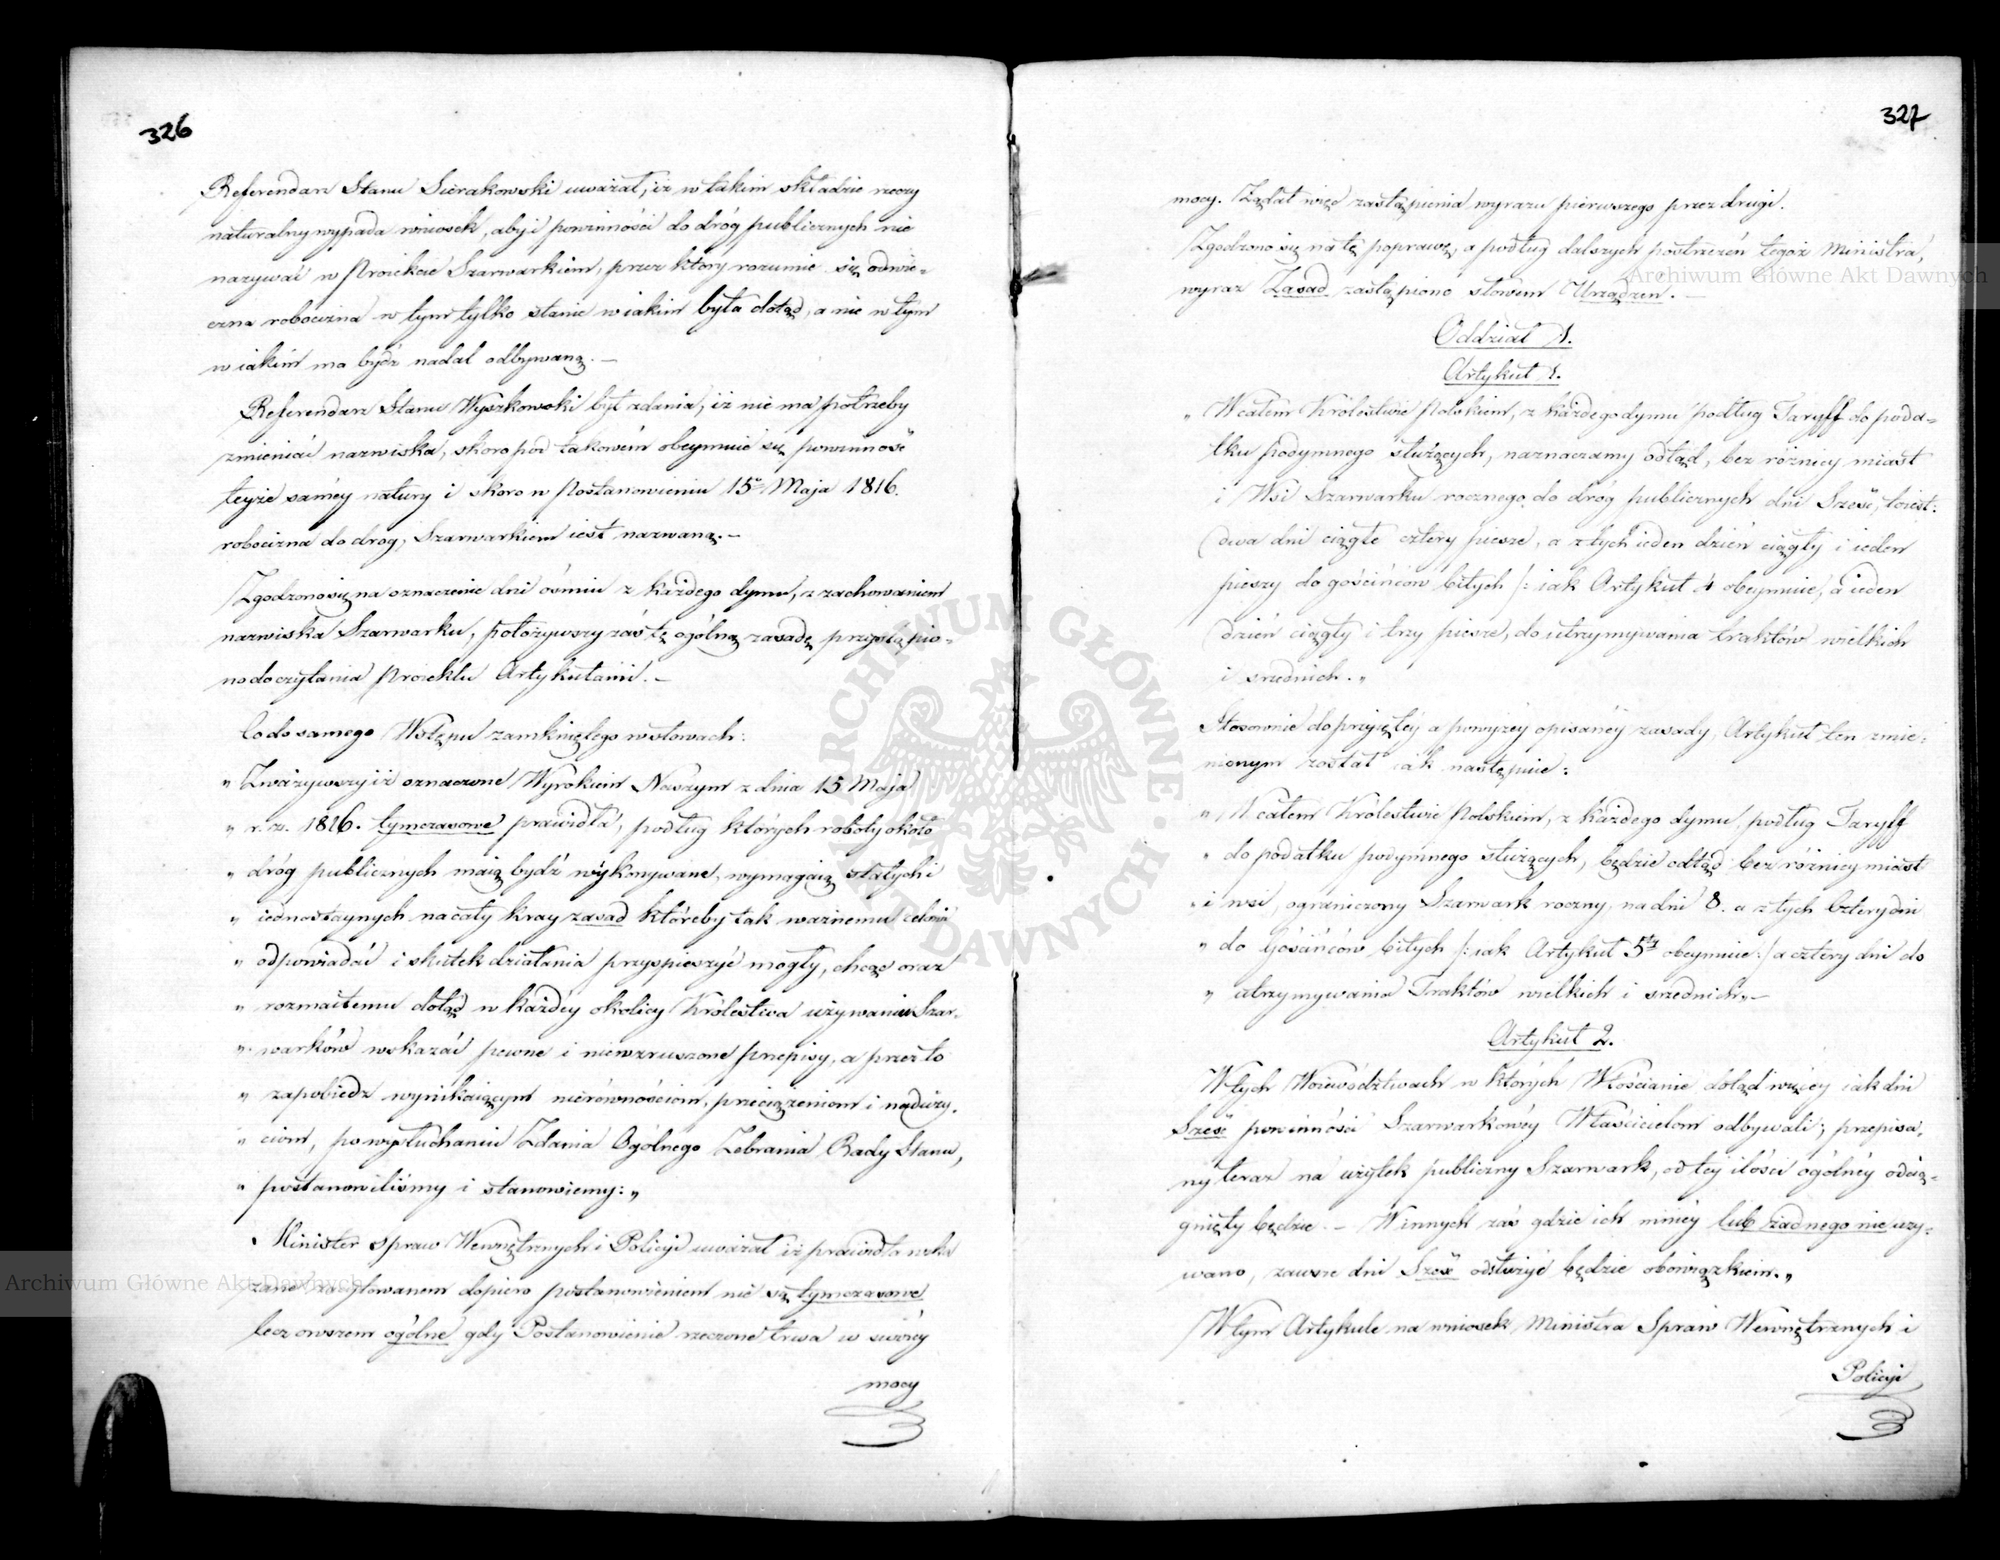 326
Referendarz Stanu Sierakowski uważał, iż w takim składzie rzeczy
naturalny wypada wniosek, aby i powinności do dróg publicznych nie
nazywać w Proiekcie Szarwarkiem, przez który rozumie się odwie-
czna robocizna w tym tylko stanie w iakim była dotąd, a nie w tym
w iakim ma bydź nadal odbywaną. —
Referendarz Stanu Wyszkowski był zdania, iż nie ma potrzeby
zmieniać nazwiska, skoro pod takowém obeymuie się powinność
teyże saméy natury i skoro w Postanowieniu 15º Maja 1816.
robocizna do drog, Szarwarkiem iest nazwaną. —
Zgodzono się na oznaczenie dni ośmiu z każdego dymu, z zachowaniem
nazwiska Szarwarku, położywszy zaś tę ogólną zasadę przystąpio-
no do czytania Proiektu Artykułami. —
Co do samego Wstępu zamkniętego w słowach:
„ Zważywszy iż oznaczone Wyrokiem Naszym z dnia 15 Maja
„ r. z. 1816. tymczasowe prawidła, podług których roboty około
„ dróg publicznych maią bydź wykonywane, wymagaią stałych i
„ iednostaynych na cały kray zasad któreby tak ważnemu celowi
„ odpowiadać i skutek działania przyspieszyć mogły, chcąc oraz
„ rozmaitemu dotąd w każdéy okolicy Królestwa używaniu Szar-
„ warków wskazać pewne i niewzruszone przepisy, a przez to
„ zapobiedz wynikaiącym nierównościom, przeciążeniom i naduży-
„ ciom, po wysłuchaniu Zdania Ogólnego Zebrania Rady Stanu,
„ postanowiliśmy i stanowiemy: „
Minister Spraw Wewnętrznych i Policyi uważał iż prawidła wska
zane zacytowanem dopiero postanowieniem nie są tymczasowe
lecz owszem ogólne gdy Postanowienie rzeczone trwa w swoiéy
mocy
327
mocy. Żądał więc zastąpienia wyrazu pierwszego przez drugi.
Zgodzono się na tę poprawę, a podług dalszych postrzeżeń tegoż Ministra,
wyraz Zasad zastąpiono słowem Urządzen. —
Oddział 1.
Artykuł 1.
„ W całem Królestwie Polskiem, z każdego dymu podług Taryff do poda-
tku podymnego służących, naznaczamy odtąd, bez różnicy miast
i Wsi Szarwarku rocznego do dróg publicznych dni Sześć, toiest:
dwa dni ciągłe cztery piesze, a z tych ieden dzień ciągły i ieden
pieszy do gościńców bitych /: iak Artykuł 4 obeymuie, a ieden
dzień ciągły i trzy piesze, do utrzymywania traktów wielkich
i srednich. „
Stosownie do przyiętéy a powyżéy opisanéy zasady, Artykuł ten zmie-
nionym został iak następuie:
„ W całem Królestwie Polskiem, z każdego dymu, podług Taryff
„ do podatku podymnego służących, będzie odtąd bez różnicy miast
„ i wsi, ograniczony Szarwark roczny, na dni 8. a z tych cztery dni
„ do Gościńców bitych /: iak Artykuł 5ty obeymuie :/ a cztery dni do
„ utrzymywania Traktów wielkich i srednich „ —
Artykuł 2.
W tych Woiewództwach w których Włościanie dotąd więcéy iak dni
Sześć powinności Szarwarkowéy Właścicielom odbywali, przepisa-
ny teraz na użytek publiczny Szarwark, od téy ilości ogólnéy odcią-
gnięty będzie. — W innych zaś gdzie ich mniéy lub żadnego nie uży-
wano, zawsze dni Sześć odsłużyć będzie obowiązkiem. „
W tym Artykule na wniosek Ministra Spraw Wewnętrznych i
Policyi
Archiwum Główne Akt Dawnych
Archiwum Główne Akt Dawnych
ARCHIWUM GŁÓWNE · AKT DAWNYCH ·